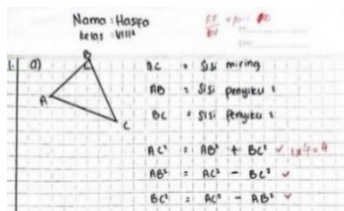 Nama : Hasfa
kelas : VIII
1. a)
B
A
C
AC = Sisi miring
AB = Sisi penyiku 1
BC = Sisi penyiku 2
AC² = AB² + BC² ✓ 1x4=4
AB² = AC² - BC² ✓
BC² = AC² - AB² ✓